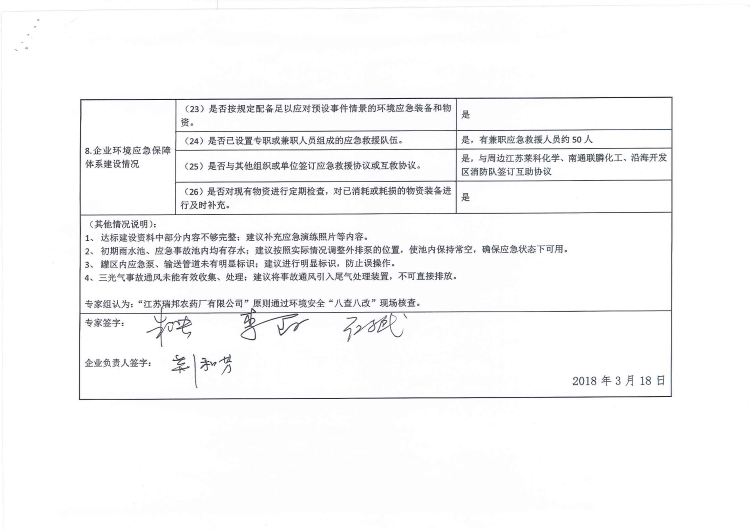 8.企业环境应急保障
体系建设情况
（23）是否按规定配备足以应对预设事件情景的环境应急装备和物
资。
是
（24）是否已设置专职或兼职人员组成的应急救援队伍。
是，有兼职应急救援人员约 50 人
（25）是否与其他组织或单位签订应急救援协议或互救协议。
是，与周边江苏莱科化学、南通联膦化工、沿海开发
区消防队签订互助协议
（26）是否对现有物资进行定期检查，对已消耗或耗损的物资装备进
行及时补充。
是
（其他情况说明）：
1、 达标建设资料中部分内容不够完整；建议补充应急演练照片等内容。
2、 初期雨水池、应急事故池内均有存水；建议按照实际情况调整外排泵的位置，使池内保持常空，确保应急状态下可用。
3、 罐区内应急泵、输送管道未有明显标识；建议进行明显标识，防止误操作。
4、 三光气事故通风未能有效收集、处理；建议将事故通风引入尾气处理装置，不可直接排放。
专家组认为：“江苏瑞邦农药厂有限公司”原则通过环境安全“八查八改”现场核查。
专家签字：
企业负责人签字：
2018 年 3 月 18 日